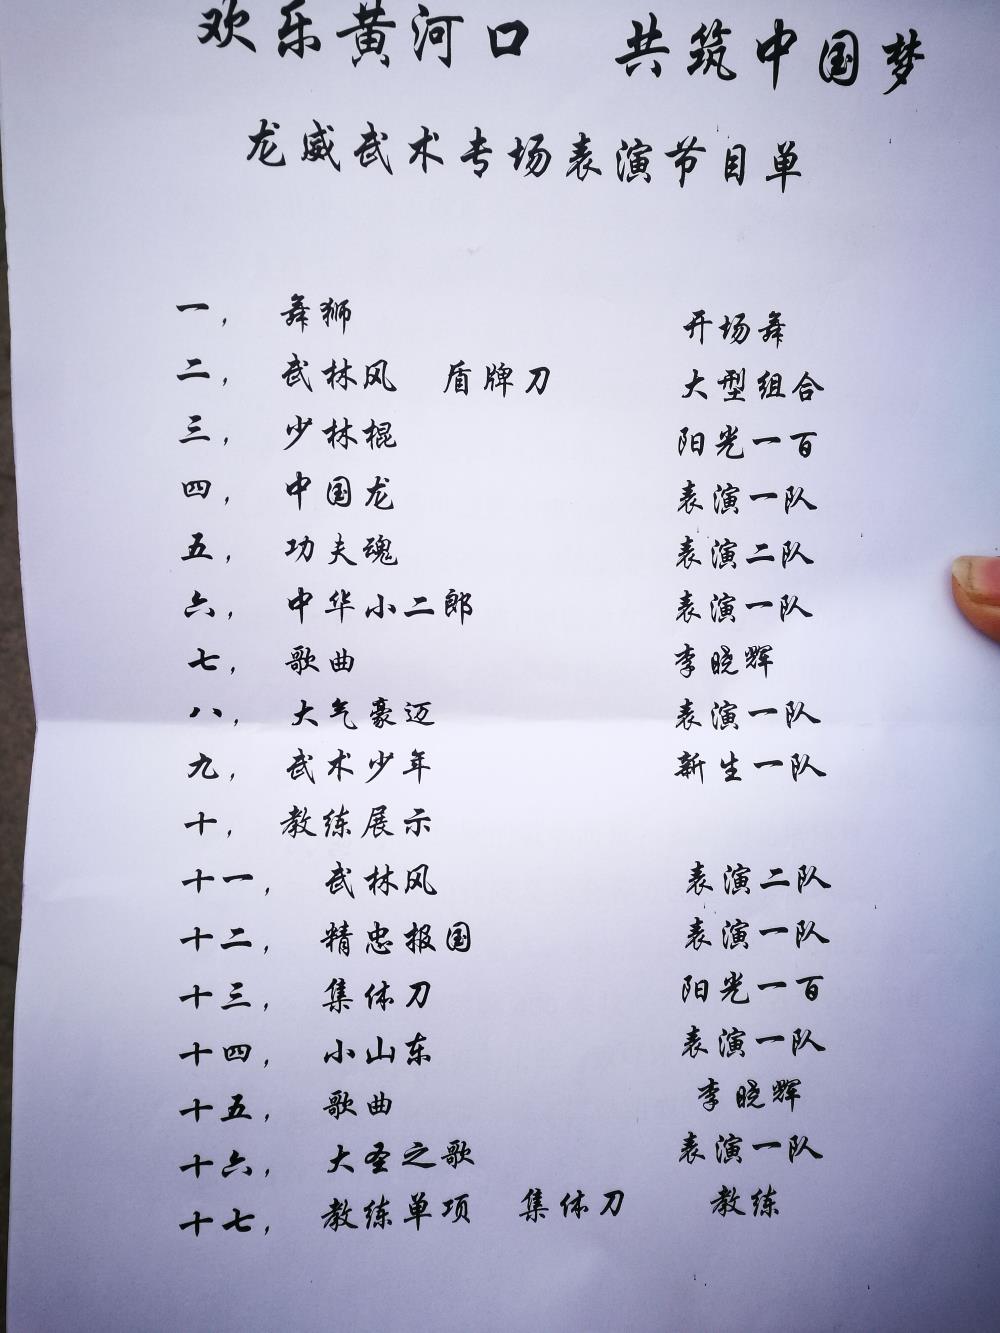 欢乐黄河口 共筑中国梦
龙威武术专场表演节目单
一， 舞狮 开场舞
二， 武林风 盾牌刀 大型组合
三， 少林棍 阳光一百
四， 中国龙 表演一队
五， 功夫魂 表演二队
六， 中华小二郎 表演一队
七， 歌曲 李晓辉
八， 大气豪迈 表演一队
九， 武术少年 新生一队
十， 教练展示
十一， 武林风 表演二队
十二， 精忠报国 表演一队
十三， 集体刀 阳光一百
十四， 小山东 表演一队
十五， 歌曲 李晓辉
十六， 大圣之歌 表演一队
十七， 教练单项 集体刀 教练